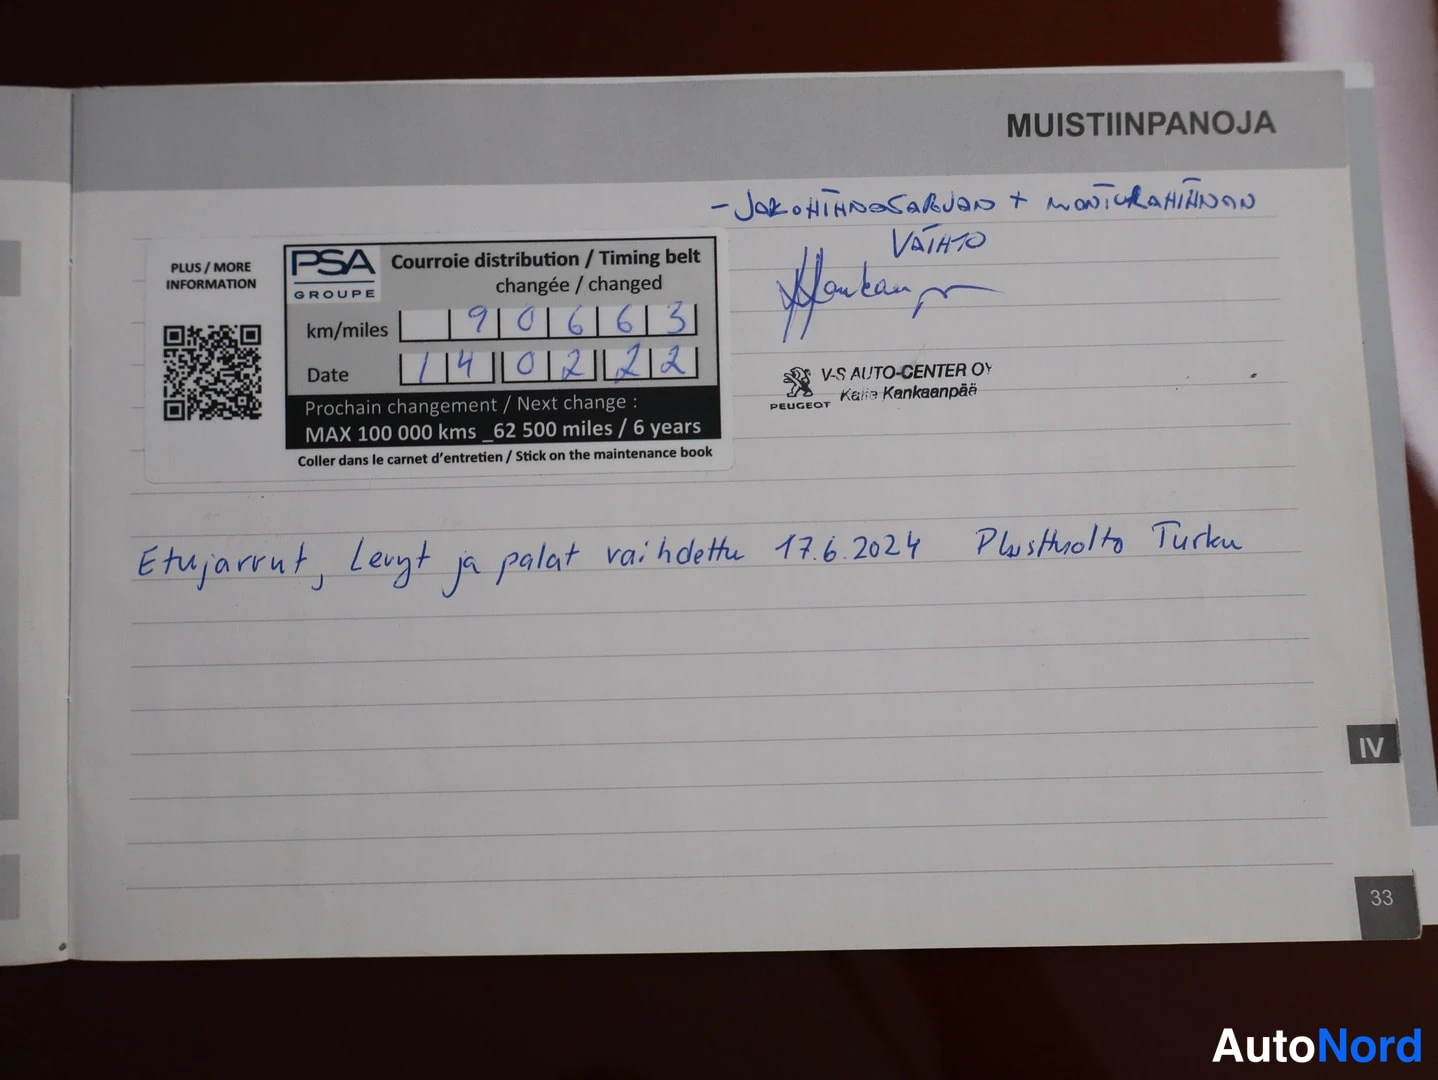 MUISTIINPANOJA
- JAKOHIHNASARJAN + MONIURAHIHNAN
VAIHTO
PLUS / MORE
INFORMATION
PSA
GROUPE
Courroie distribution / Timing belt
changée / changed
km/miles 90663
Date 14 02 22
Prochain changement / Next change :
MAX 100 000 kms _62 500 miles / 6 years
Coller dans le carnet d'entretien / Stick on the maintenance book
V-S AUTO-CENTER OY
Kankaanpää
PEUGEOT
Etujarrut, Levyt ja palat vaihdettu 17.6.2024 Plushuolto Turku
IV
33
AutoNord